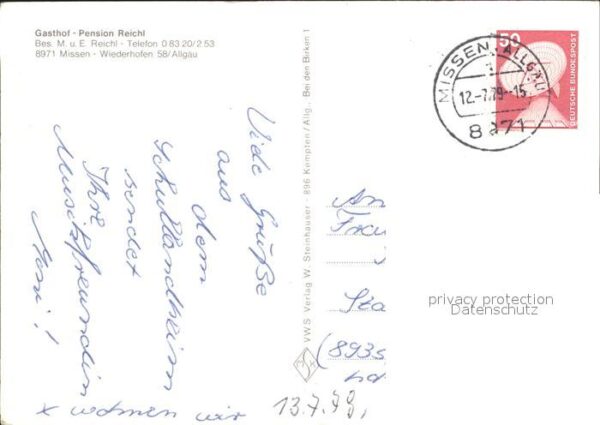 Gasthof - Pension Reichl
Bes. M. u. E. Reichl - Telefon 0 83 20/2 53
8971 Missen - Wiederhofen 58/Allgäu
50
DEUTSCHE BUNDESPOST
MISSEN, ALLGÄU
1
12.-7.79-15
8971
Viele Grüße
aus
dem
Schullandheim
sendet
Ihre
Musikfreundin
Moni!
x wohnen wir
13.7.79,
VWS Verlag W. Steinhauser - 896 Kempten/Allg. Bei den Birken 1
An
Frau
Sta
(8935
privacy protection
Datenschutz